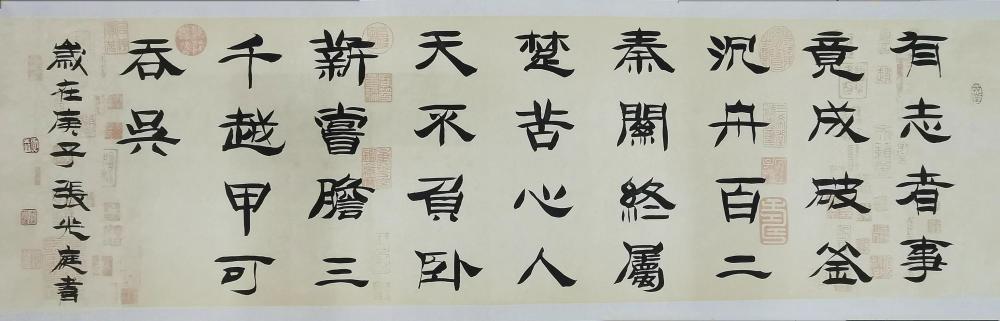 有志者事
竟成破釜
沉舟百二
秦關終屬
楚苦心人
天不負卧
薪嘗膽三
千越甲可
吞吳
歲在庚子張光庭書